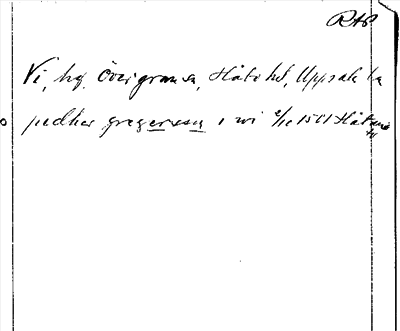 RAP
Vi, hg. Övergransn, Håbo hd, Uppsala ln
pedher gregersson i wi 2/12 1501 Håtuna